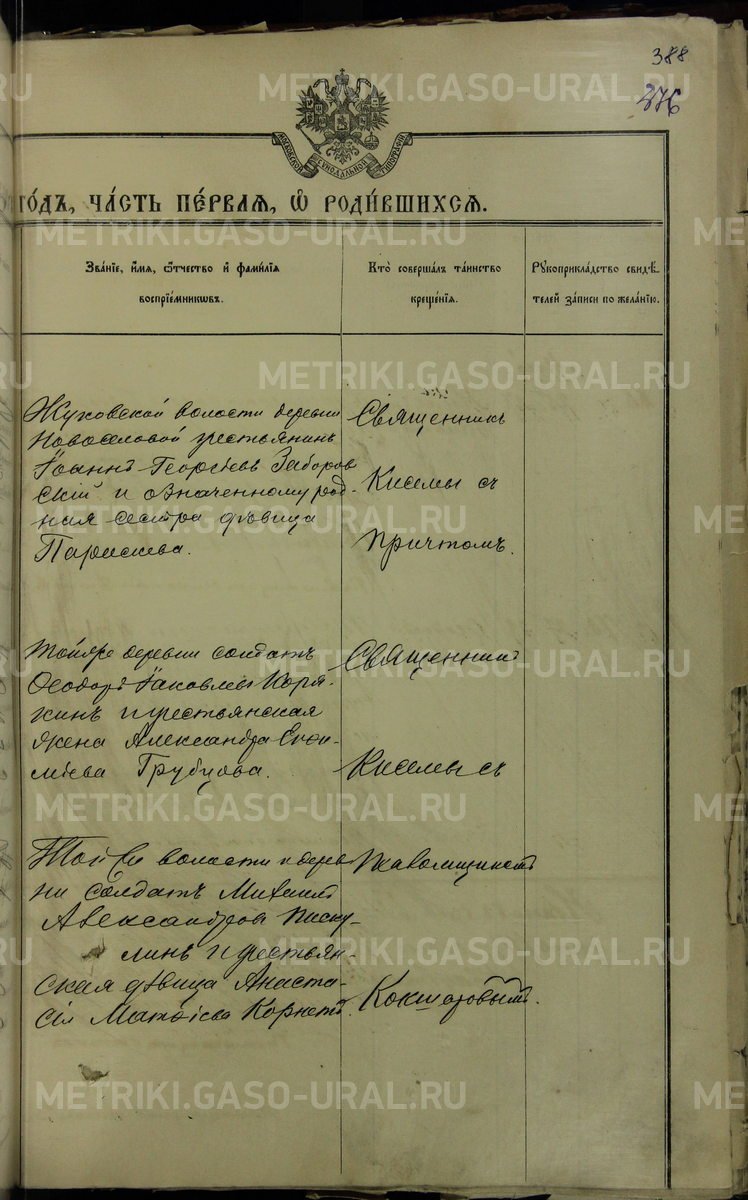 388
276
МОСКОВСКОЙ СѴНОДАЛЬНОЙ ТИПОГРАФІИ
го́дъ, ча́сть пе́рваѧ, ѡ҆ роди́вшихсѧ.
Зва́нїе, и҆́мѧ, ѻ҆́тчество и҆ фами́лїѧ
воспрїе́мникѡвъ.
Кто̀ соверша́лъ та́инство
креще́нїѧ.
Рꙋкоприкла́дство свидѣ́-
телей за́писи по жела́нїю.
Жуковской волости деревни
Новоселовой крестьянинъ
Іоаннъ Георгіевъ Заборов
скій и означенному род-
ная сестра дѣвица
Параскева.
Священникъ
Киселевъ съ
причтомъ.
Тойже деревни солдатъ
Ѳеодоръ Іаковлевъ Коря-
кинъ и крестьянская
жена Александра
Трубцова.
Священникъ
Киселевъ съ
Той же волости и дерев
ни солдатъ Михаилъ
Александровъ Писку-
линъ и крестьян-
ская дѣвица Анаста-
сія
псаломщикомъ
Кокшаровымъ.
METRIKI.GASO-URAL.RU